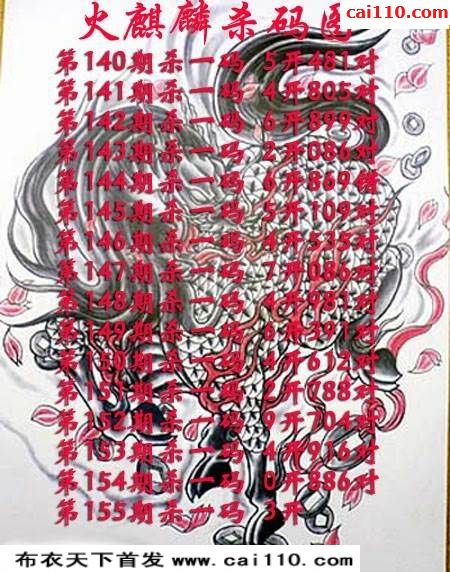 cai110.com
火麒麟杀码图
第140期杀一码 5开481对
第141期杀一码 4开805对
第142期杀一码 6开899对
第143期杀一码 2开086对
第144期杀一码 6开869错
第145期杀一码 5开109对
第146期杀一码 4开535对
第147期杀一码 7开086对
第148期杀一码 4开981对
第149期杀一码 6开391对
第150期杀一码 4开612对
第151期杀一码 2开788对
第152期杀一码 9开704对
第153期杀一码 4开916对
第154期杀一码 0开886对
第155期杀一码 3开
布衣天下首发 www.cai110.com